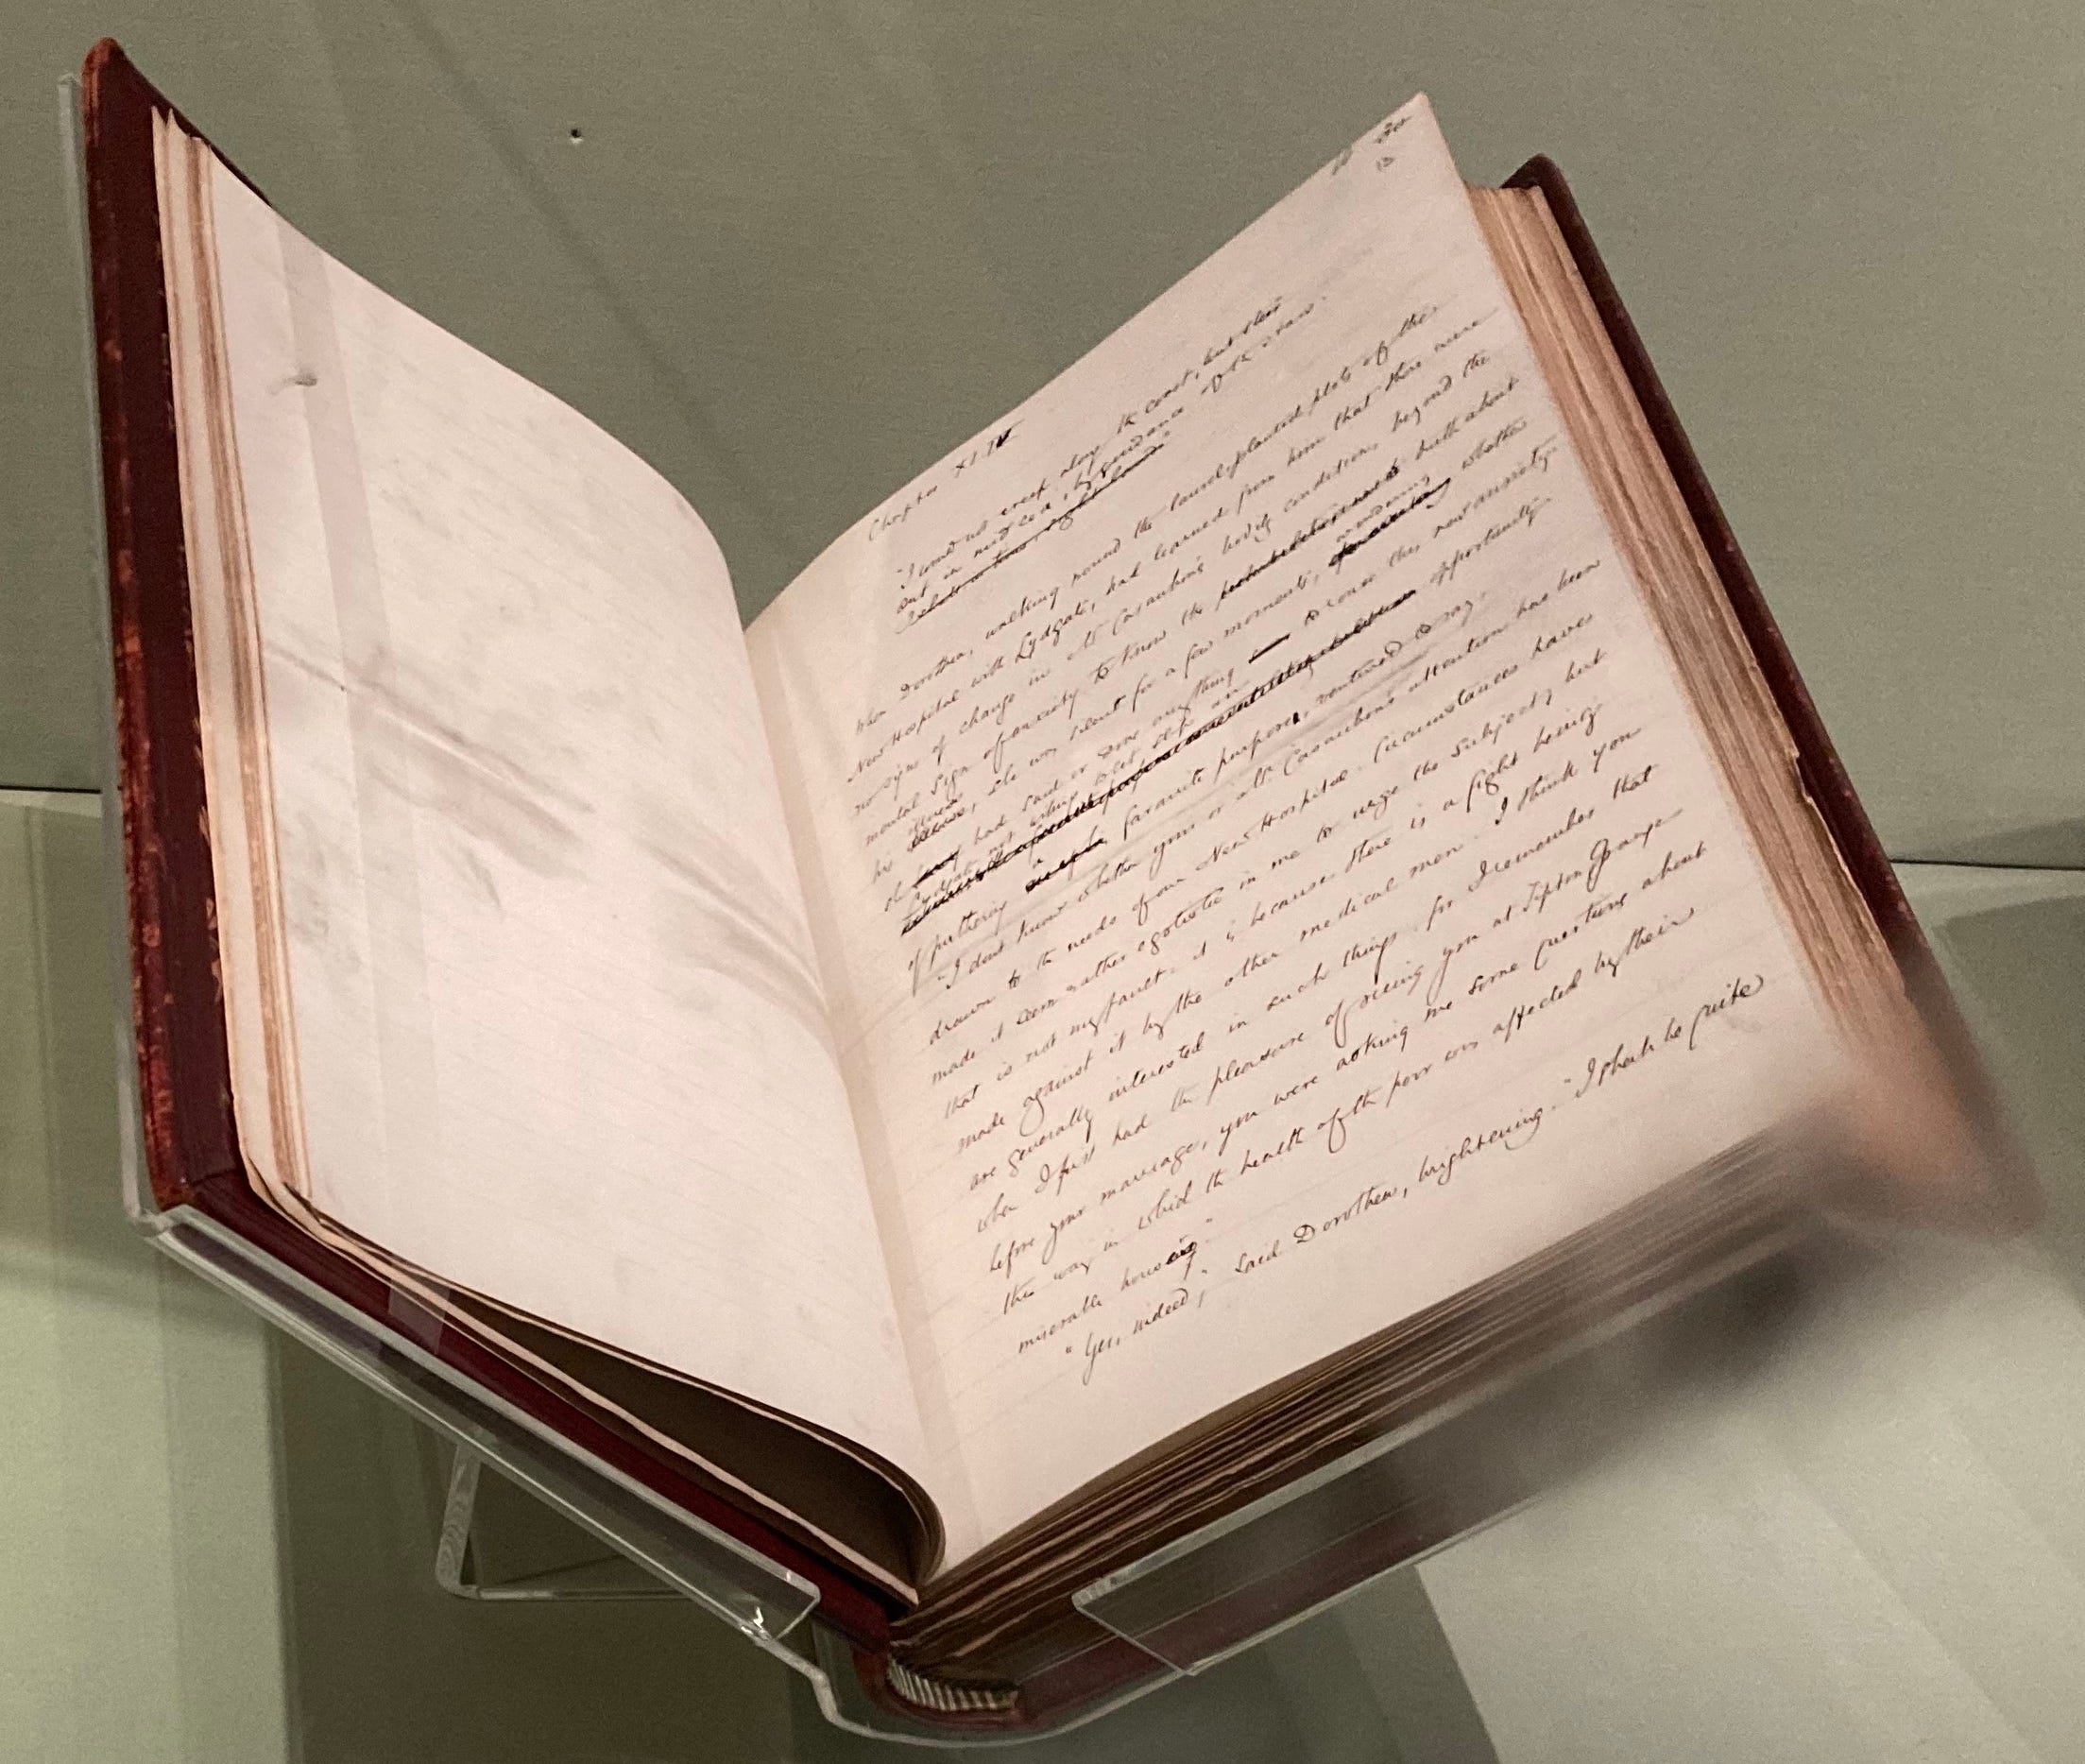 Chapter XLIV
"I would not creep along the coast, but steer
Out in mid-sea, by guidance of the stars."
When Dorothea, walking round the laurel-planted plots of the
New Hospital with Lydgate, had learned from him that there were
no signs of change in Mr Casaubon's bodily condition beyond the
mental sign of anxiety to know the truth about
his illness, she was silent for a few moments, wondering whether
she had said or done anything to rouse this new anxiety.
Lydgate, not willing to let slip an opportunity
of furthering a favourite purpose, ventured to say,
"I don't know whether your or Mr Casaubon's attention has been
drawn to the needs of our New Hospital. Circumstances have
made it seem rather egotistic in me to urge the subject; but
that is not my fault: it is because there is a fight being
made against it by the other medical men. I think you
are generally interested in such things, for I remember that
when I first had the pleasure of seeing you at Tipton Grange
before your marriage, you were asking me some questions about
the way in which the health of the poor was affected by their
miserable housing."
"Yes, indeed," said Dorothea, brightening. "I shall be quite